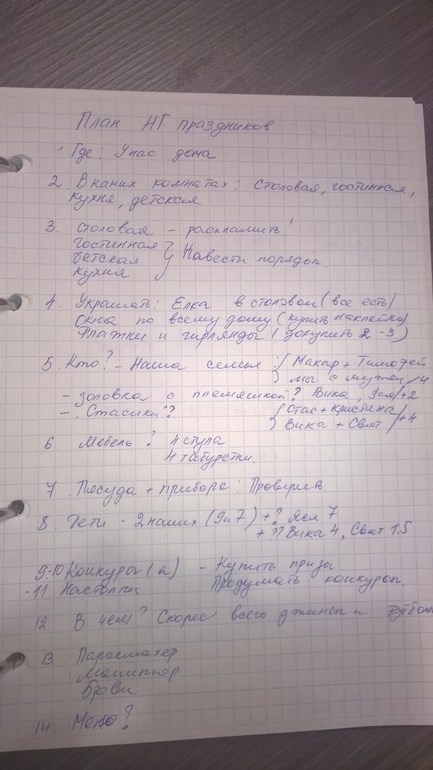 План НГ праздников
1. Где: У нас дома
2. В каких комнатах: столовая, гостинная,
кухня, детская
3. Столовая - расхламить!
Гостинная
Детская } Навести порядок
Кухня
4. Украшать: Елка в столовой (все есть)
Окна по всему дому (купить наклейки)
Флажки и гирлянды (докупить 2-3)
5. Кто? - Наша семья: Макар + Тимофей
мы с мужем /4
- золовка с племяшкой? Вика, /+2
- "Стасики"? Стас + Кристина
Вика + Свят /+4
6. Мебель? 4 стула
4 табуретки
7. Посуда + приборы: Проверить
8. Дети - 2 наших (9 и 7) + ? 7
+ ?? Вика 4, Свят 1.5
9-10 Конкурсы - Купить призы
Продумать конкурсы
11 Настолки
12 В чем? Скорее всего джинсы и
13. Парикмахер
Маникюр
Брови
14. Меню?